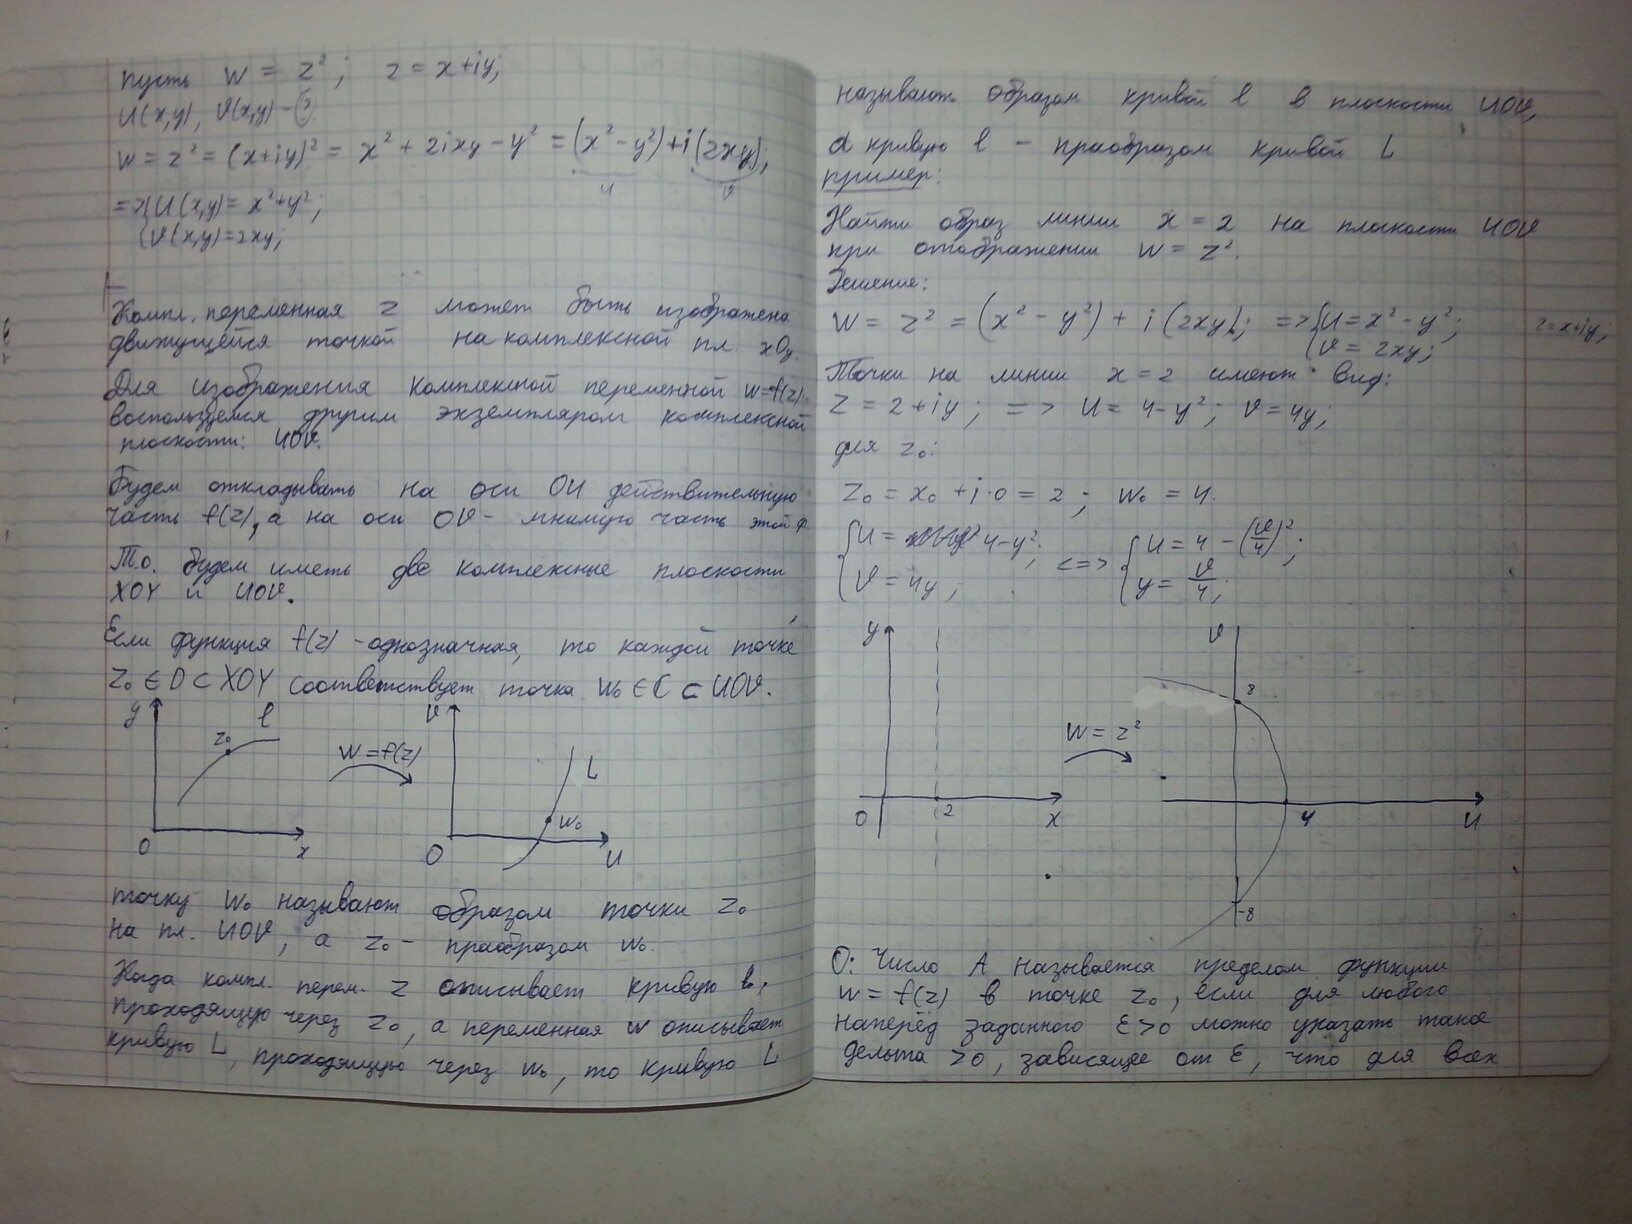 пусть w = z²; z = x+iy;
U(x,y), V(x,y) – ?
w = z² = (x+iy)² = x² + 2ixy – y² = (x² – y²) + i(2xy);
u v
=> { U(x,y) = x²+y²;
V(x,y) = 2xy;
Компл. переменная z может быть изображена
движущейся точкой на комплексной пл. xOy.
Для изображения комплексной переменной w=f(z)
воспользуемся другим экземпляром комплексной
плоскости: UOV.
Будем откладывать на оси OU действительную
часть f(z), а на оси OV – мнимую часть этой ф.
Т.о. будем иметь две комплексные плоскости
XOY и UOV.
Если функция f(z) – однозначная, то каждой точке
z₀ ∈ D ⊂ XOY соответствует точка w₀ ∈ C ⊂ UOV.
y l z₀ 0 x
w = f(z)
V L w₀ 0 U
точку w₀ называют образом точки z₀
на пл. UOV, а z₀ – праобразом w₀.
Когда компл. перем. z описывает кривую l,
проходящую через z₀, а переменная w описывает
кривую L, проходящую через w₀, то кривую L
называют образом кривой l в плоскости UOV,
а кривую l – праобразом кривой L
пример:
Найти образ линии x = 2 на плоскости UOV
при отображении w = z².
Решение:
w = z² = (x² – y²) + i(2xy); => { U = x² – y²; z = x+iy;
V = 2xy;
Точки на линии x = 2 имеют вид:
z = 2 + iy; => U = 4–y²; V = 4y;
для z₀:
z₀ = x₀ + i·0 = 2; w₀ = 4.
{ U = 4–y²; <=> { U = 4 – (V/4)²;
V = 4y; y = V/4;
y 0 2 x
w = z²
V 8 4 U –8
О: Число A называется пределом функции
w = f(z) в точке z₀, если для любого
наперёд заданного ε>0 можно указать такое
дельта >0, зависящее от ε, что для всех